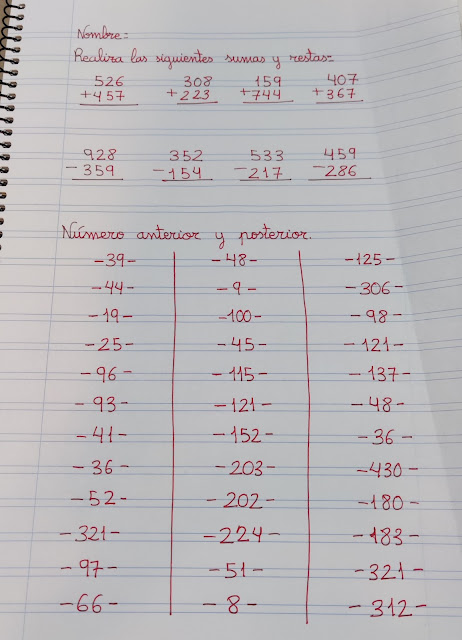 Nombre=
Realiza las siguientes sumas y restas=
526 308 159 407
+457 +223 +744 +367
928 352 533 459
-359 -154 -217 -286
Número anterior y posterior.
-39- -48- -125-
-44- -9- -306-
-19- -100- -98-
-25- -45- -121-
-96- -115- -137-
-93- -121- -48-
-41- -152- -36-
-36- -203- -430-
-52- -202- -180-
-321- -224- -183-
-97- -51- -321-
-66- -8- -312-